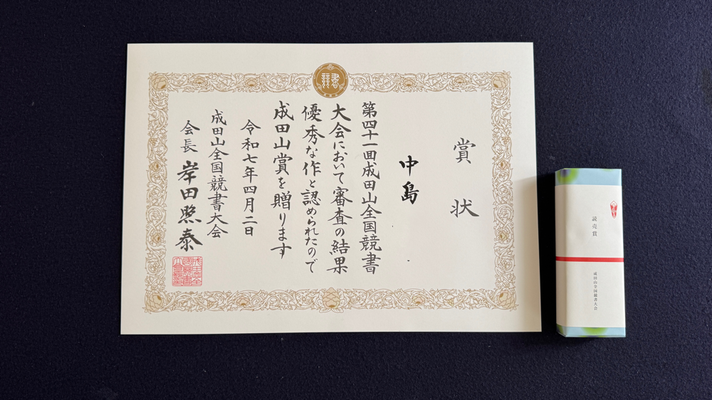 賞状
中島
第四十一回成田山全国競書
大会において審査の結果
優秀な作と認められたので
成田山賞を贈ります
令和七年四月二日
成田山全国競書大会
会長 岸田照泰
成田山全国競書大会